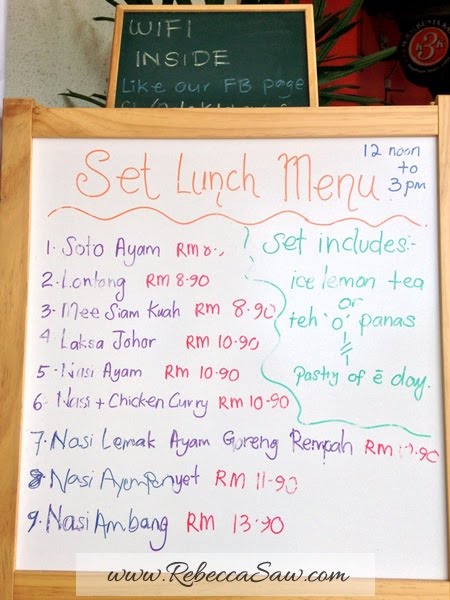 WIFI
INSIDE
Like our FB page
Set Lunch Menu
12 noon
to
3 pm
1. Soto Ayam RM 8.
2. Lontong RM 8.90
3. Mee Siam Kuah RM 8.90
4 Laksa Johor RM 10.90
5. Nasi Ayam RM 10.90
6. Nasi + Chicken Curry RM 10.90
7. Nasi Lemak Ayam Goreng Rempah RM
8. Nasi Ayam Penyet RM 11.90
9. Nasi Ambang RM 13.90
Set includes:-
ice lemon tea
or
teh 'O' panas
+
Pastry of ē day.
www.RebeccaSaw.com